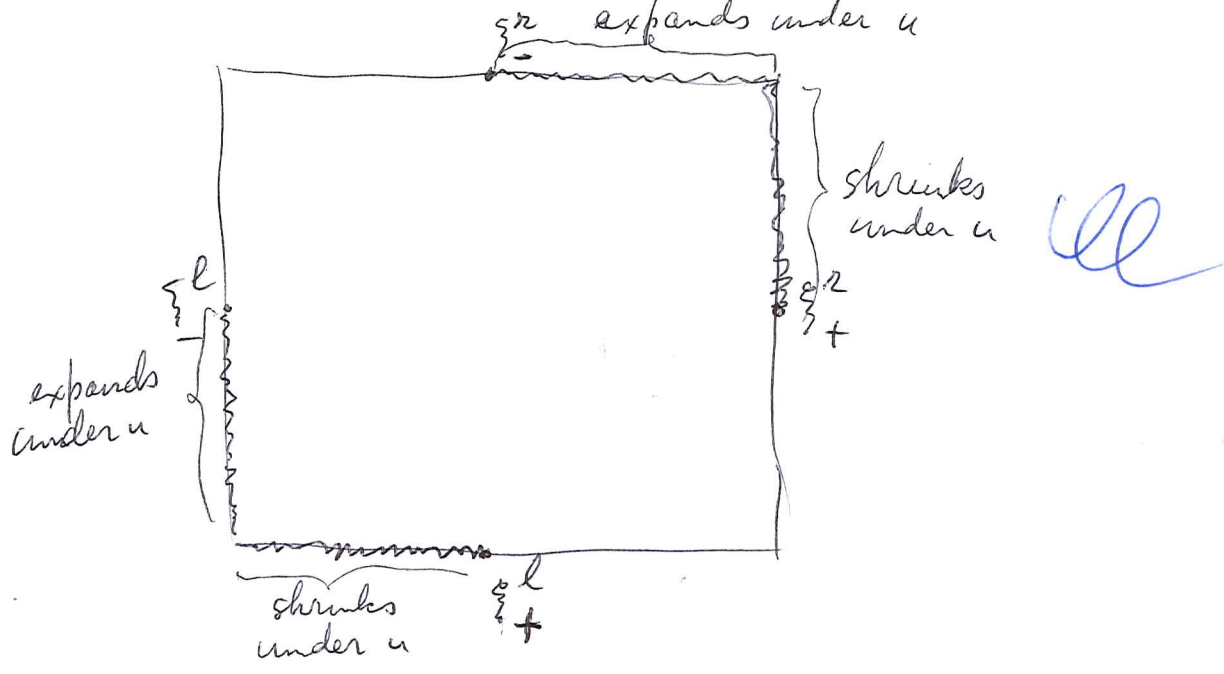 ξ^r_- expands under u
shrinks
under u
ξ^l_-
ξ^r_+
expands
under u
ξ^l_+
shrinks
under u